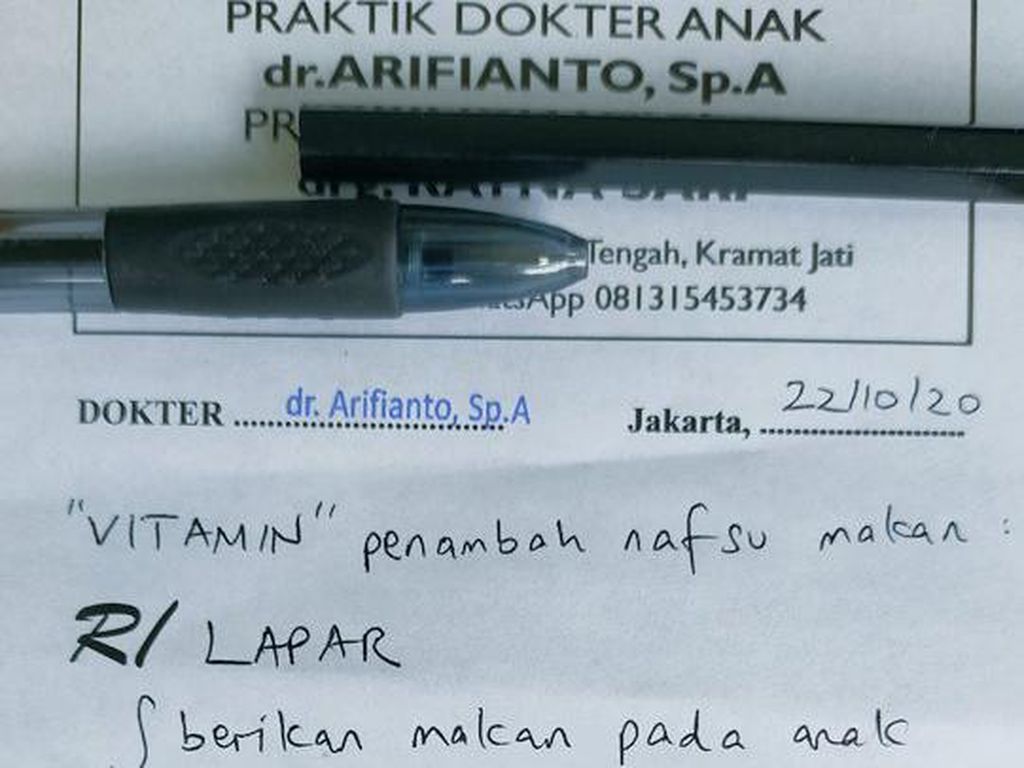 PRAKTIK DOKTER ANAK
dr.ARIFIANTO, Sp.A
Tengah, Kramat Jati
App 081315453734
DOKTER .................... dr. Arifianto, Sp.A
Jakarta, .................... 22/10/20
"VITAMIN" penambah nafsu makan :
R/ LAPAR
∫ berikan makan pada anak